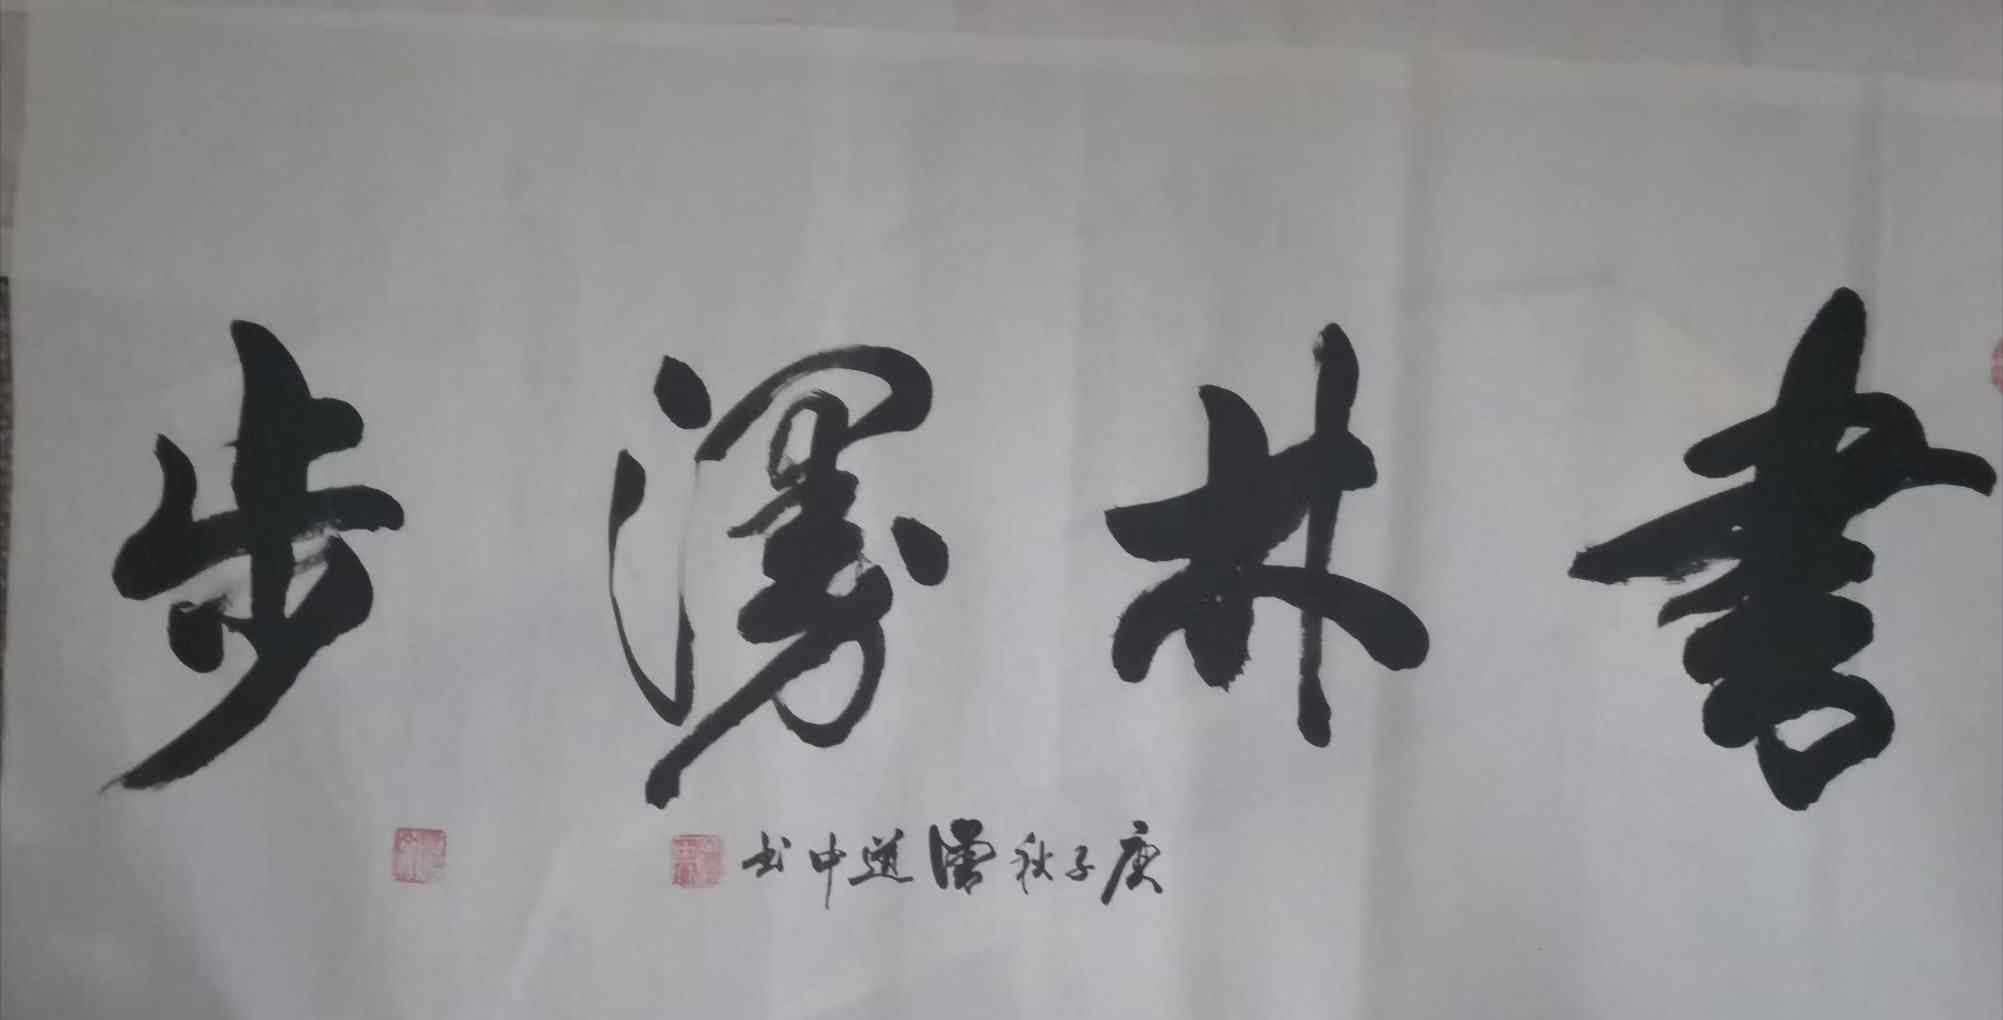 書林漫步
庚子秋潘道中书